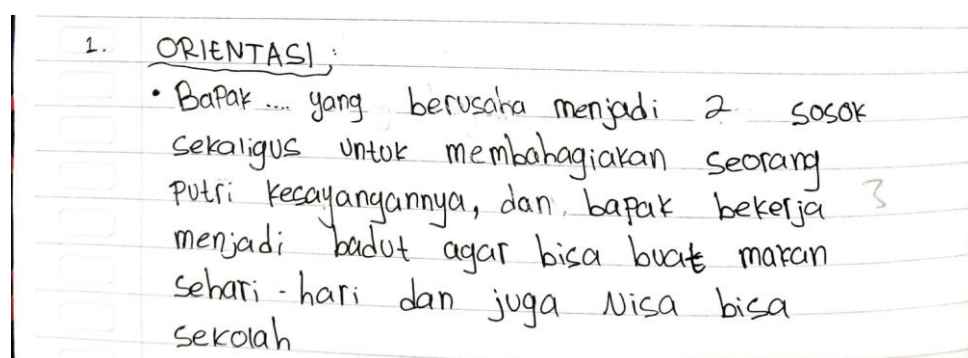 1. ORIENTASI :
• Bapak .... yang berusaha menjadi 2 sosok
sekaligus untuk membahagiakan seorang
putri kesayangannya, dan, bapak bekerja 3
menjadi badut agar bisa buat makan
sehari - hari dan juga Nisa bisa
sekolah